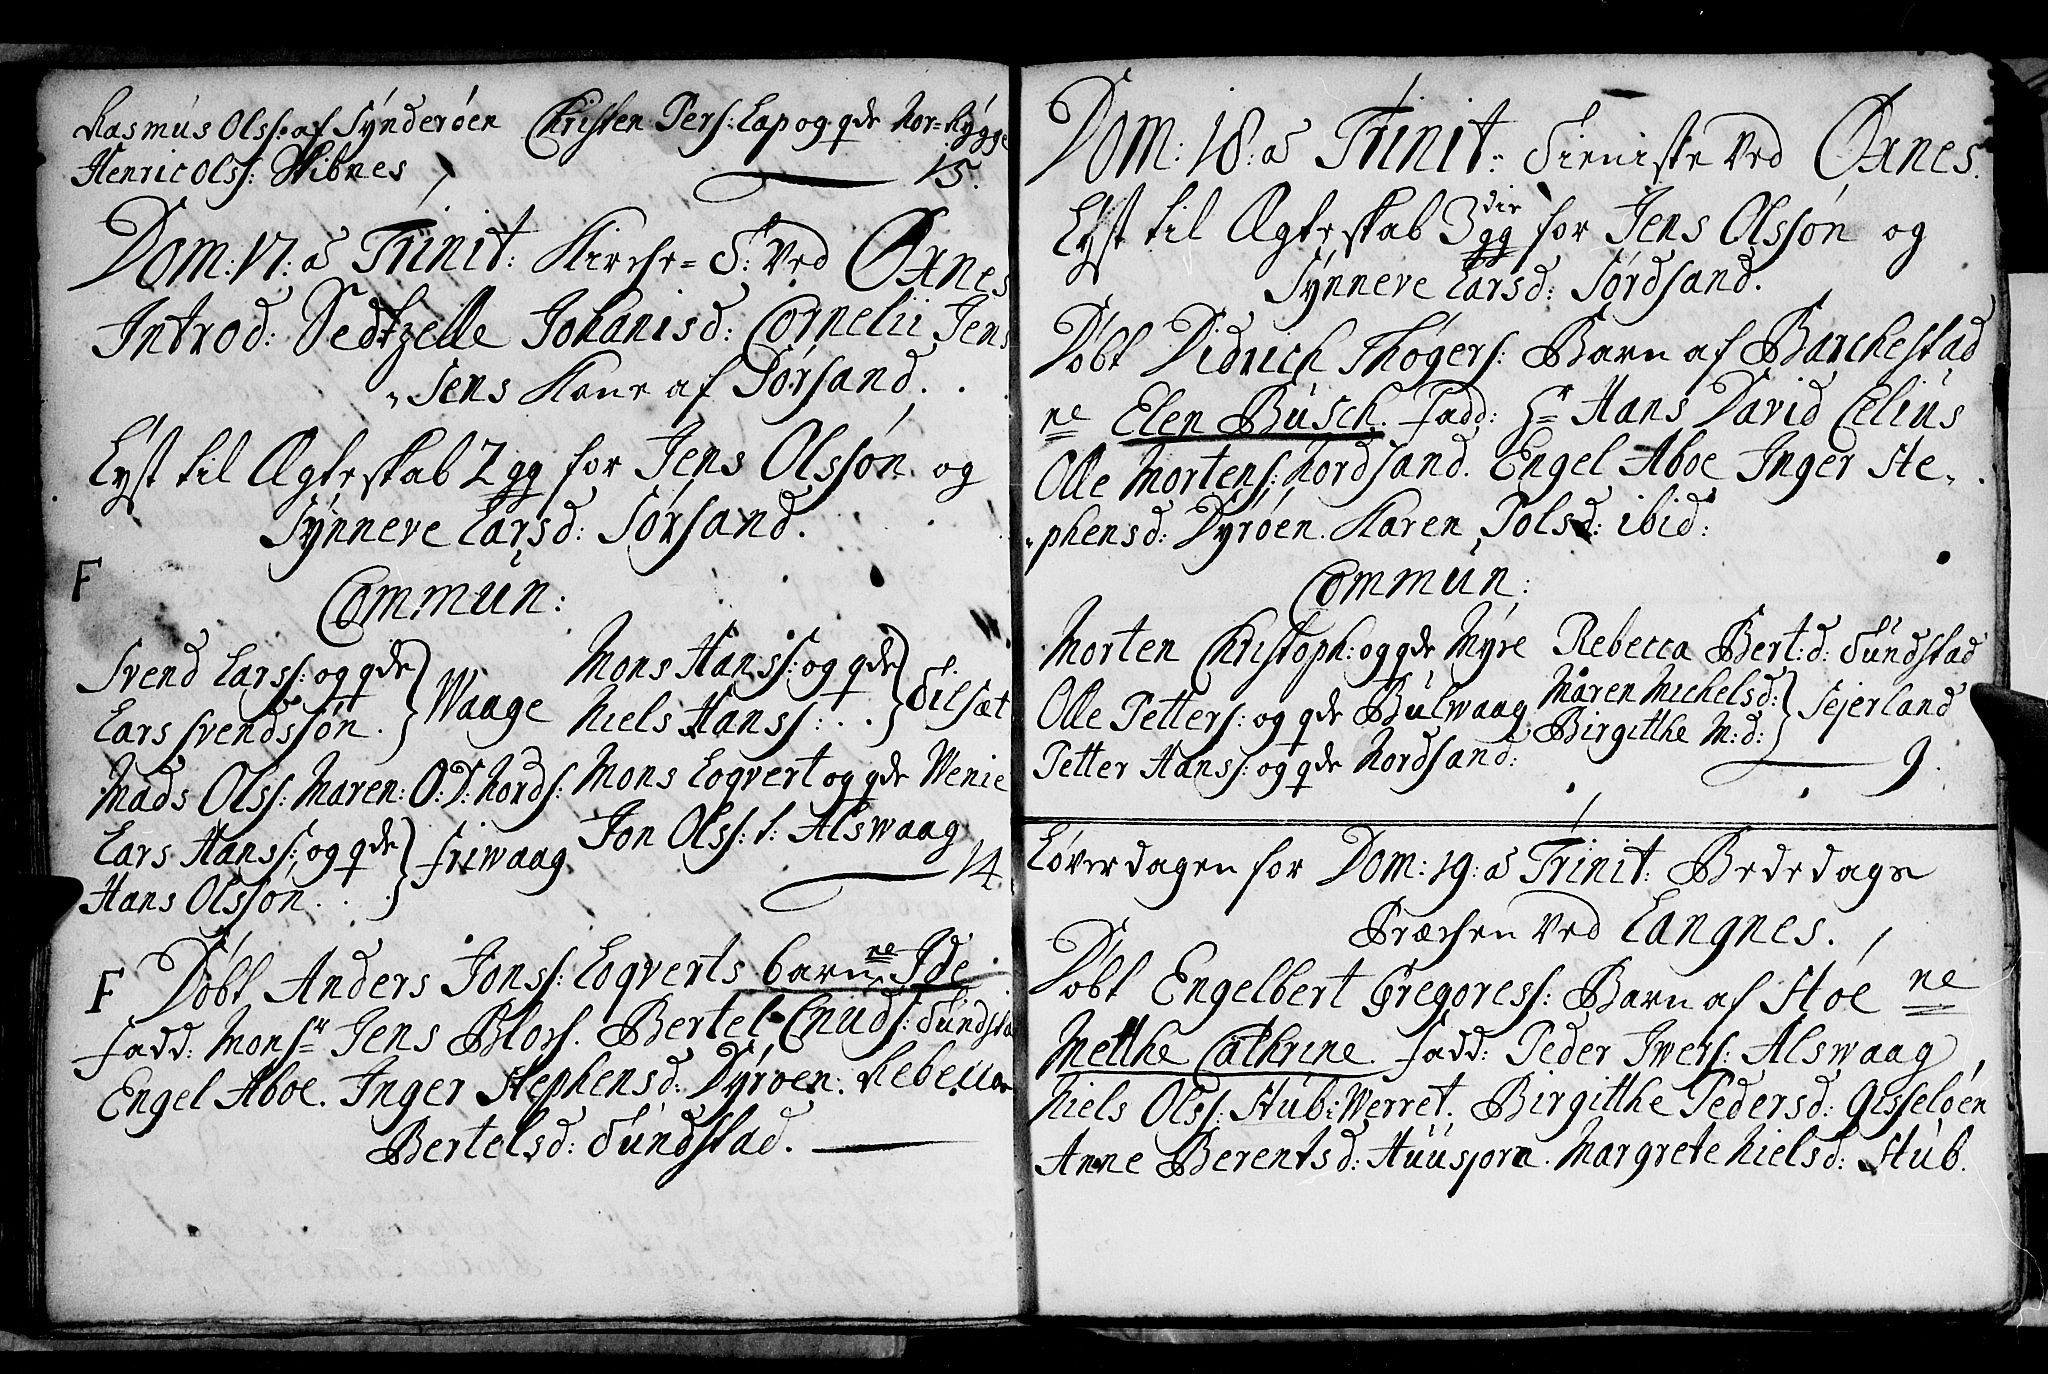 Rasmus Olss: af Sÿnderøen Christen Pers: Lap og qde Nor-Rÿgge
Henric Olss: Skibnes 15.
Dom: 17: a Trinit: Kirche-S: Ved Øxnes
Introd: Sedtzelle Johanisd: Cornelii Jens
"Sens Kone af Sørsand.
Lÿst til Ægteskab 2 gg for Jens Olssøn og
Sÿnneve Larsd: Sørsand.
F
Commun:
Svend Larss: og qde
Lars Svendssøn. Waage
Mons Hanss: og qde
Niels Hanss: Tilsæt
Mads Olss: Maren: O:D: Nords: Mons Loqvert og qde Wenie
Lars Hanss: og qde
Hans Olssøn. friwaag
Jon Olss: s: Alswaag
14
F Døbt Anders Jonss: Loqverts barn ne Ide
fadd: Monsr Jens Blors. Bertel Cnuds: Sundsta
Engel Aboe. Inger Stephensd: Dÿrøen. Rebecca
Bertelsd: Sundstad.
Dom: 18: a Trinit: Tieniste Ved Øxnes.
Lÿst til Ægteskab 3die gg for Jens Olssøn og
Sÿnneve Larsd: Sørdsand.
Døbt Didrich Thøgers: Barn af Barchestad
ne Elen Busch. fadd: Hr Hans David Celius
Olle Mortens: Nordsand. Engel Aboe Inger Ste"
"phensd: Dyrøen. Karen Polsd: ibid:
Commun:
Morten Christoph: og qde Mÿre Rebecca Bert:d: Sundstad
Olle Petters: og qde Bulwaag Maren Michelsd:
Birgitthe M:d: Sejerland
Petter Hanss: og qde Nordsand: 9.
Løverdagen for Dom: 19: a Trinit: Bededags
Præchen Ved Langnes.
Døbt Engelbert Gregoress: Barn af Støe ne
Metthe Cathrine. fadd: Peder Iwers: Alswaag
Niels Olss: Stub: Werret. Birgitthe Pedersd: Gisseløen
Anne Berentsd: Huusjorn. Margrete Nielsd: Stub.